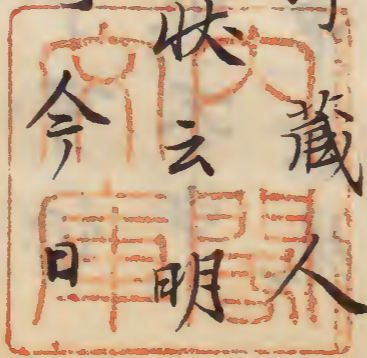 蔵人
状云明
今日
内閣
文庫